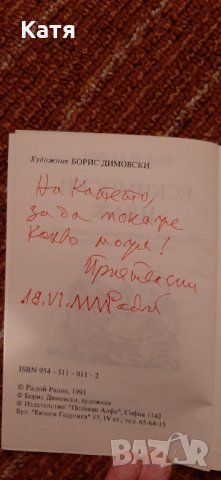 Катя
Художник БОРИС ДИМОВСКИ
На Катето,
за да покаже
какво може!
Приятелски
18.VI. Радой
ISBN 954 - 511 - 011 - 2
© Радой Ралин, 1993
© Борис Димовски, художник
© Издателство: "Пеликан Алфа", София 1142
Бул. "Евлоги Георгиев" 17, IV ет., тел. 65-64-15
bazar
БГ